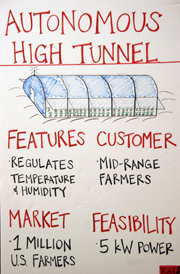 AUTONOMOUS
HIGH TUNNEL
FEATURES
·REGULATES
TEMPERATURE
& HUMIDITY
CUSTOMER
·MID-RANGE
FARMERS
MARKET
·1 MILLION
U.S. FARMERS
FEASIBILITY
·5 KW POWER